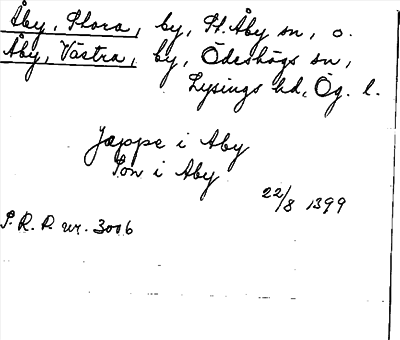 Åby, Stora, by, St. Åby sn, o.
Åby, Västra, by, Ödeshögs sn,
Lysings hd, Ög. l.
Jæppe i Aby
Son i Aby
22/8 1399
S. R. P. nr. 3006